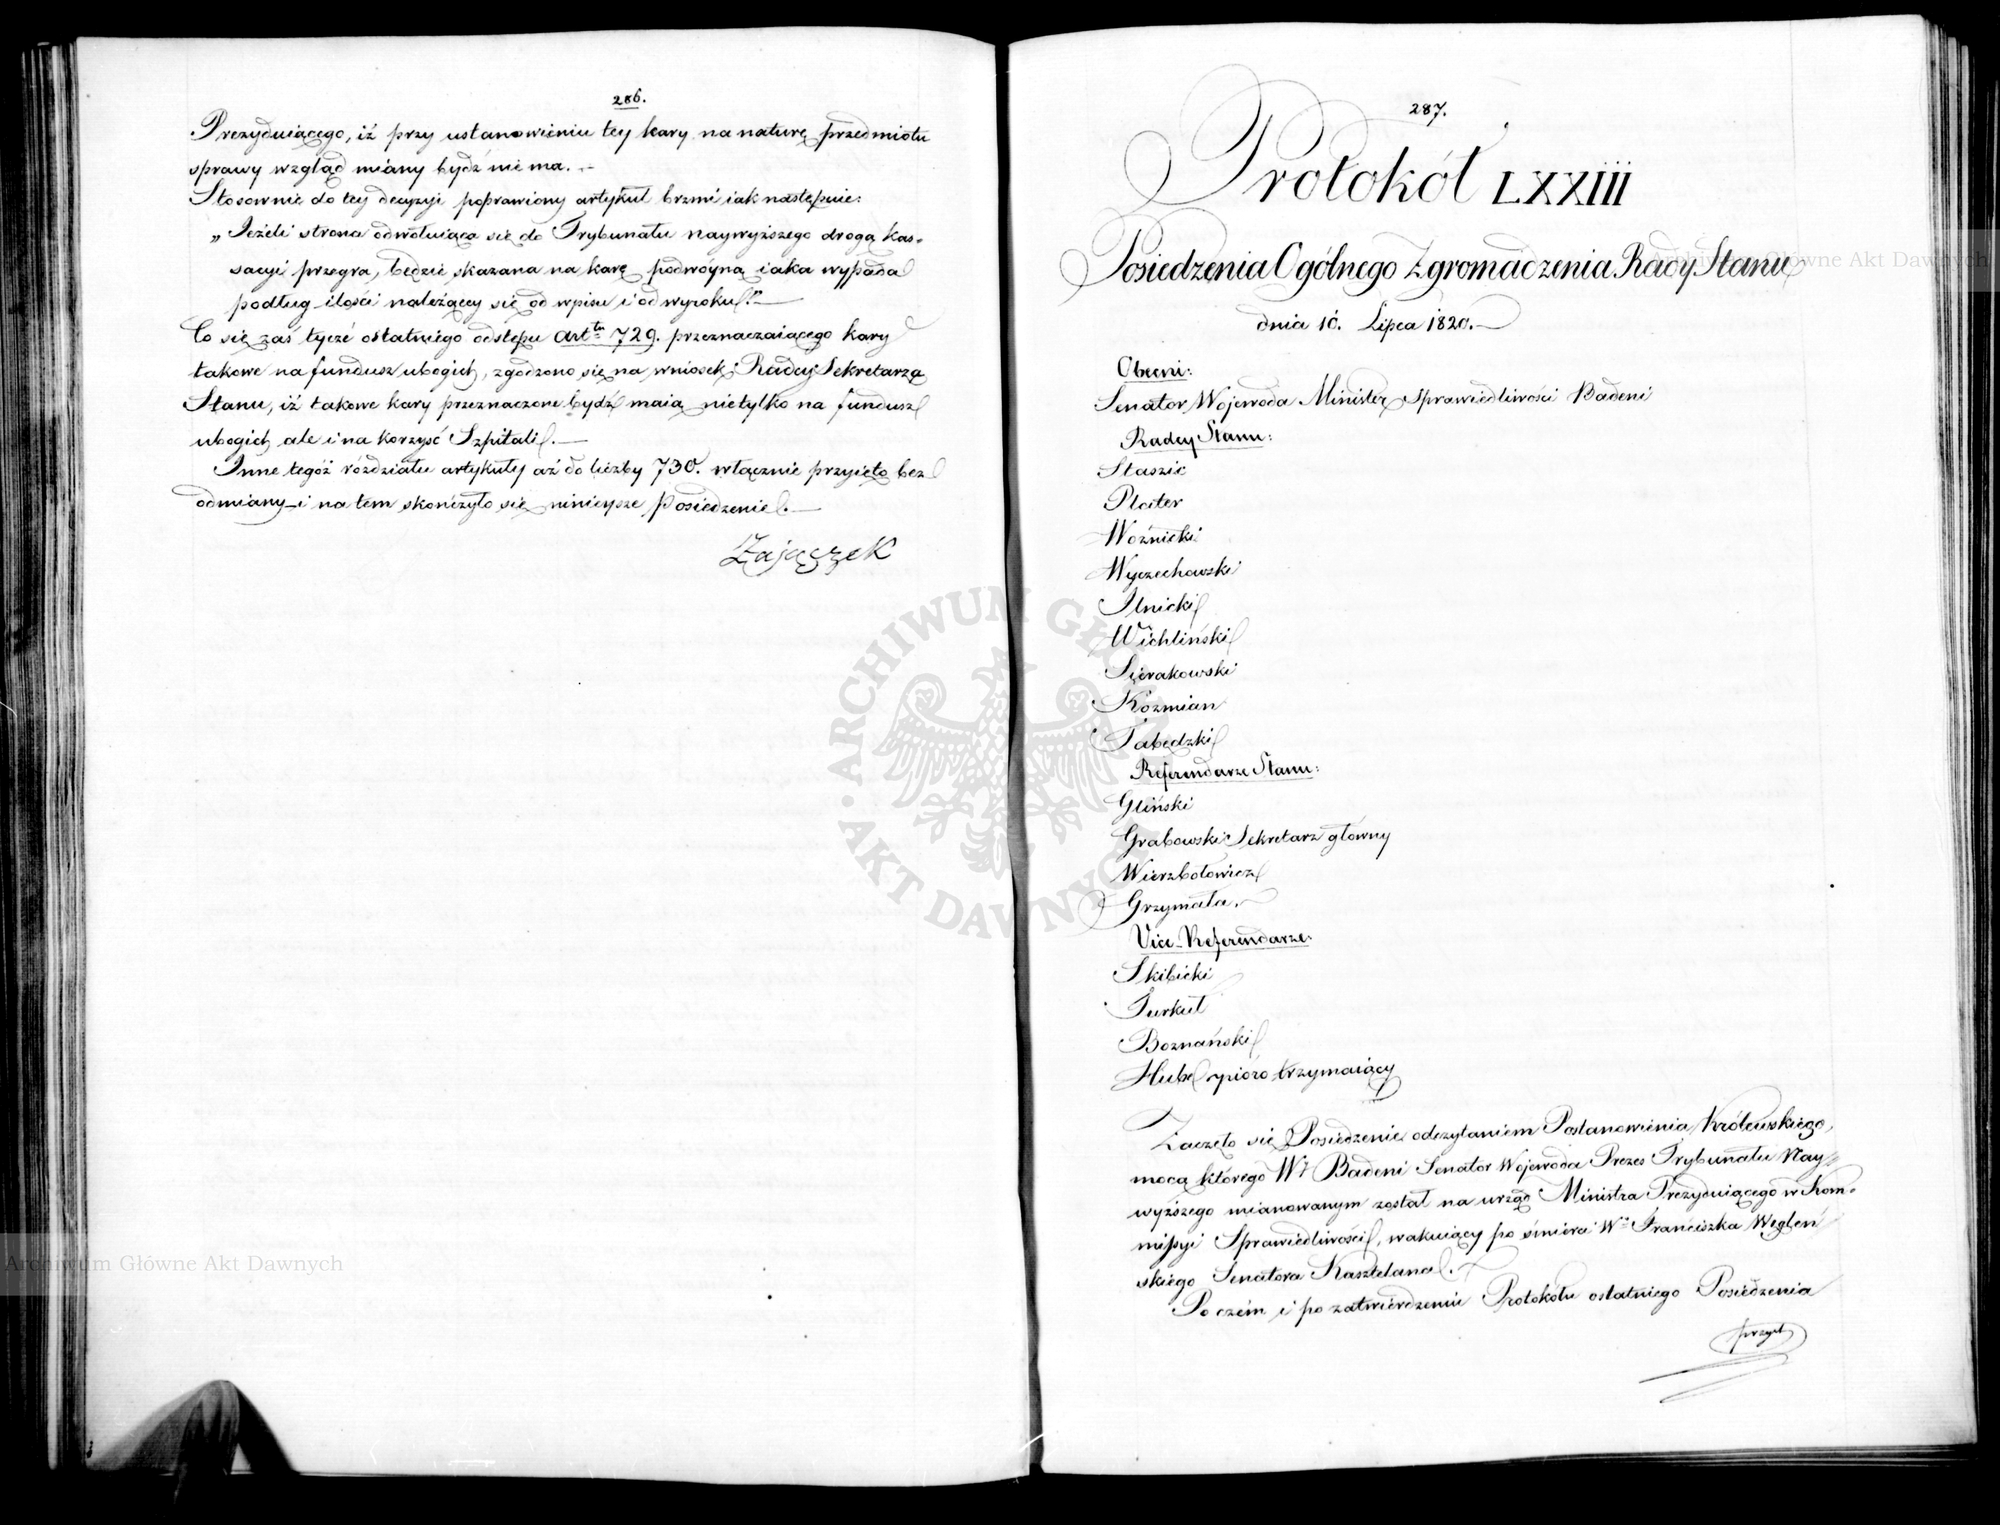 286.
Prezyduiącego, iż przy ustanowieniu tey kary na naturę przedmiotu
sprawy wzgląd miany bydź nie ma. –
Stosownie do tey decyzyi poprawiony artykuł brzmi iak następuie:
„Jeżeli strona odwołuiąca się do Trybunału naywyższego drogą kas-
sacyi przegra, będzie skazana na karę podwóyną iaka wypada
podług ilości należącey się od wpisu i od wyroku." —
Co się zaś tycze ostatniego odstępu art.tu 729. przeznaczaiącego kary
takowe na fundusz ubogich, zgodzono się na wniosek Radcy Sekretarza
Stanu, iż takowe kary przeznaczone bydź maią nietylko na fundusz
ubogich ale i na korzyść Szpitali. —
Inne tegoż rozdziału artykuły aż do liczby 730. włącznie przyięto bez
odmiany i na tem skończyło się ninieysze Posiedzenie. —
Zajączek
287.
Protokół LXXIII
Posiedzenia Ogólnego Zgromadzenia Rady Stanu
dnia 10. Lipca 1820. —
Obecni:
Senator Wojewoda Minister Sprawiedliwości Badeni
Radcy Stanu:
Staszic
Plater
Woźnicki
Wyczechowski
Ilnicki
Wichliński
Sierakowski
Koźmian
Łabędzki
Referendarze Stanu:
Gliński
Grabowski Sekretarz główny
Wierzbołowicz
Grzymała. –
Vice-Referendarze:
Skibicki
Turkuł
Boznański
Hube pióro trzymaiący
Zaczęło się Posiedzenie odczytaniem Postanowienia Królewskiego,
mocą którego W. Badeni Senator Wojewoda Prezes Trybunału Nay-
wyższego mianowanym został na urząd Ministra Prezyduiącego w Kom-
missyi Sprawiedliwości, wakuiący po śmierci W. Franciszka Węgleń
skiego Senatora Kasztelana. –
Poczém i po zatwierdzeniu Protokółu ostatniego Posiedzenia
przyst
Archiwum Główne Akt Dawnych
Archiwum Główne Akt Dawnych
ARCHIWUM GŁÓWNE AKT DAWNYCH